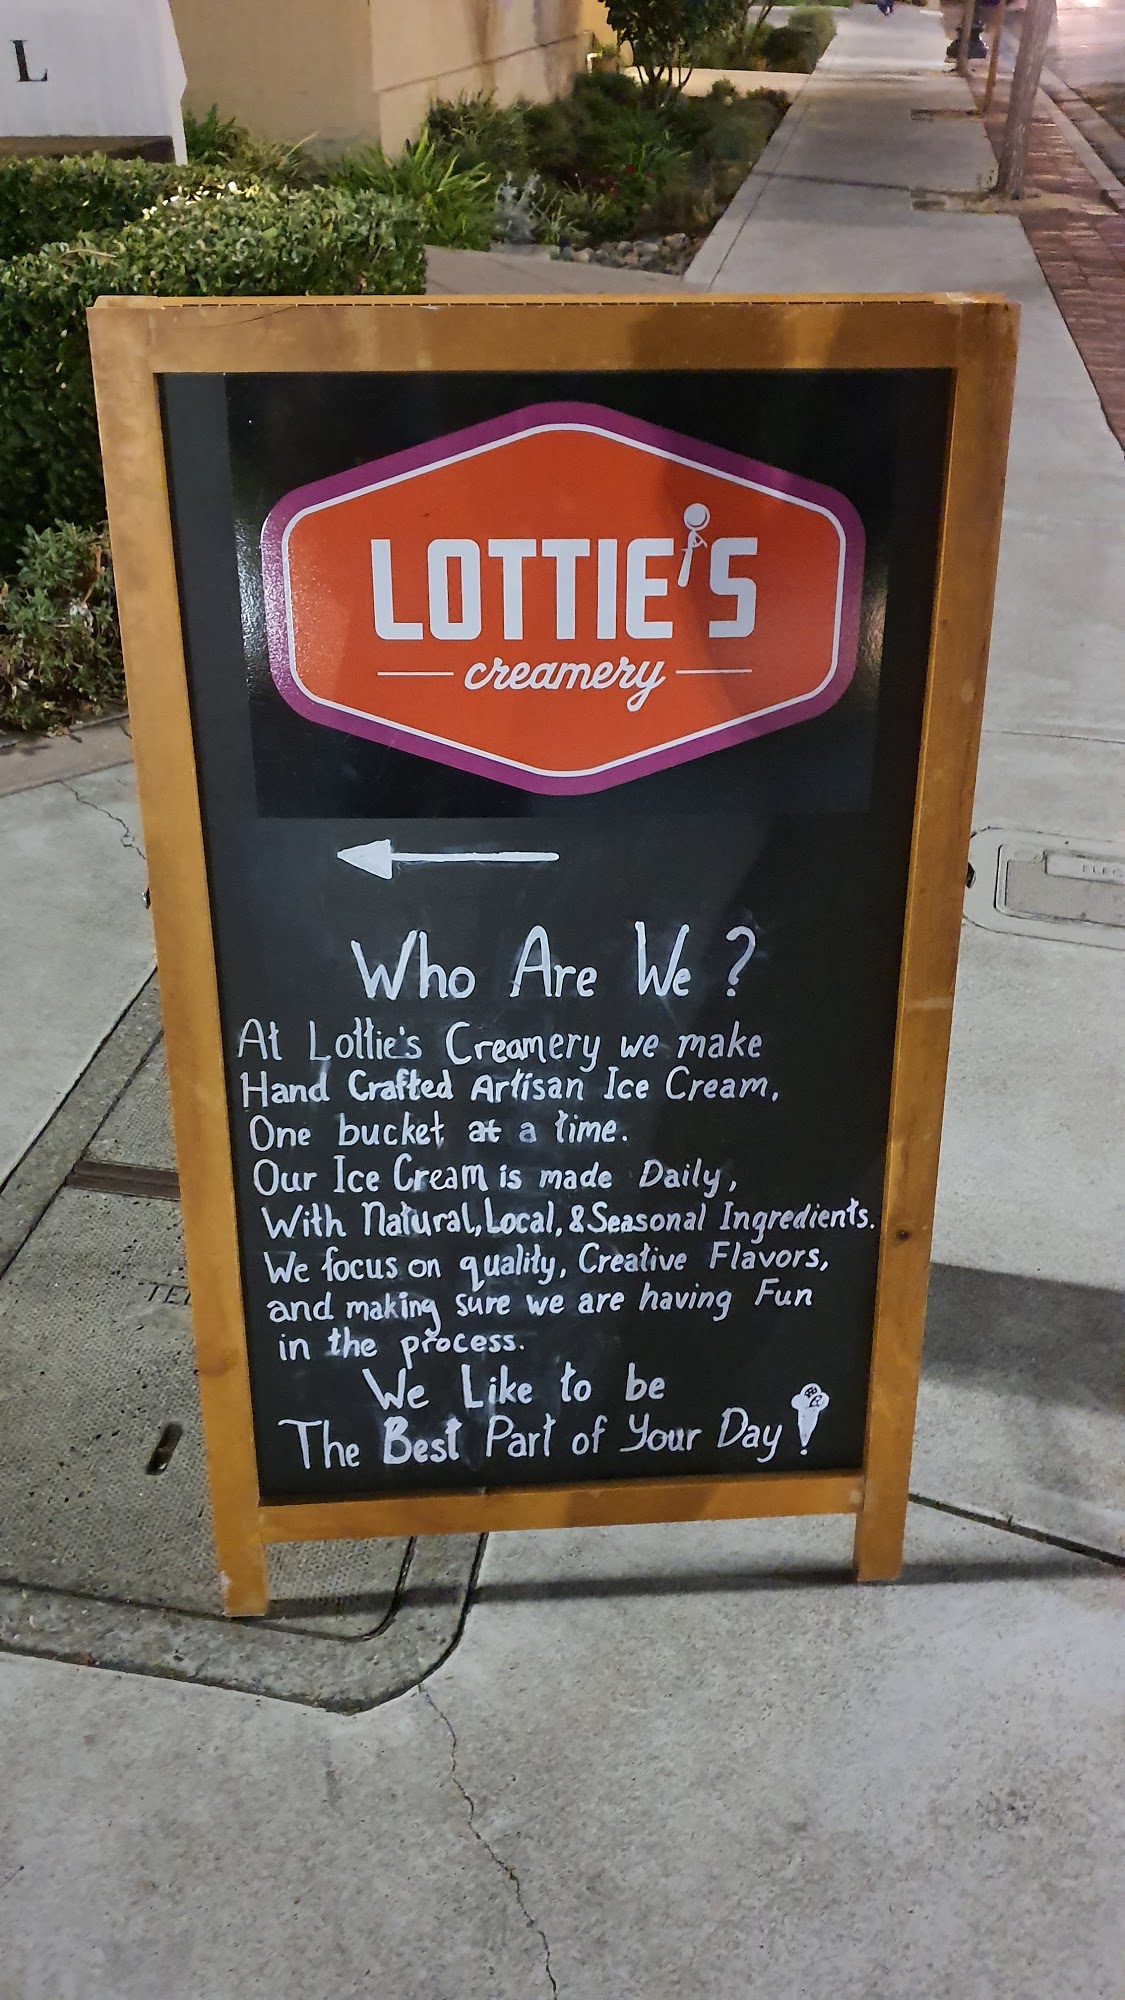 L
LOTTIE'S
creamery
Who Are We?
At Lottie's Creamery we make
Hand Crafted Artisan Ice Cream,
One bucket at a time.
Our Ice Cream is made Daily,
With Natural, Local, & Seasonal Ingredients.
We focus on quality, Creative Flavors,
and making sure we are having Fun
in the process.
We Like to be
The Best Part of Your Day!